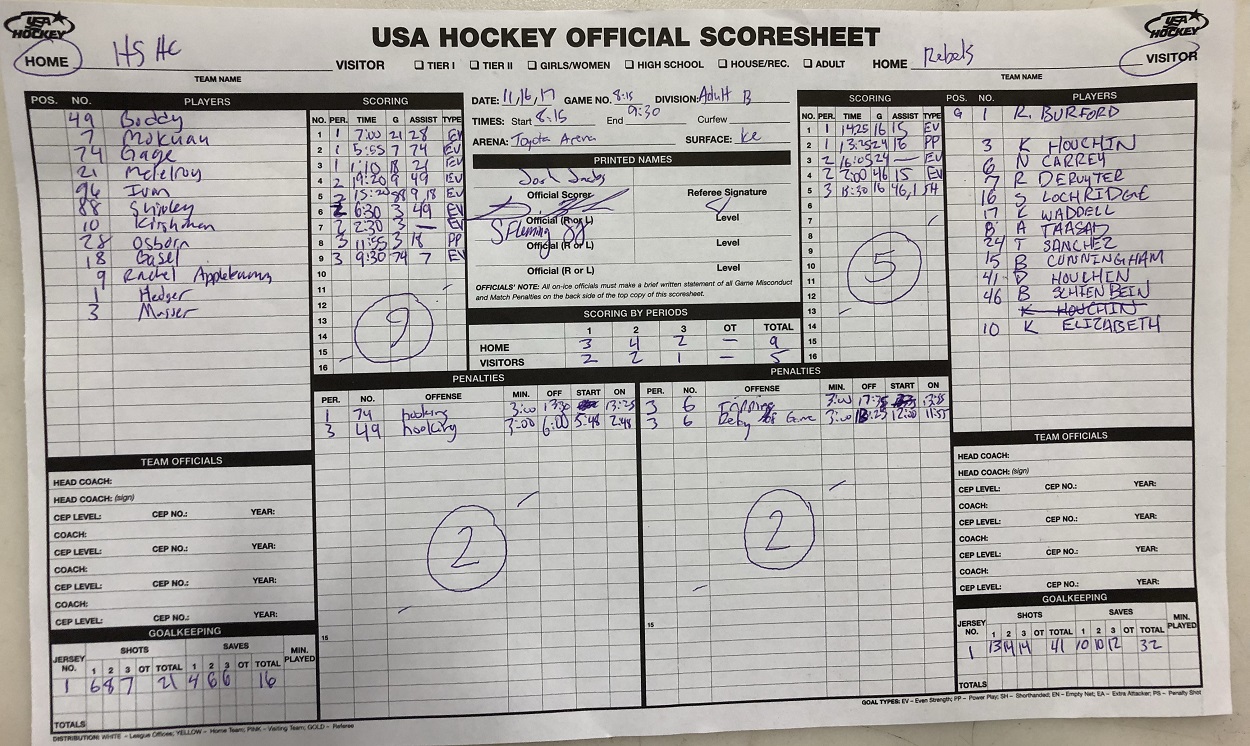 USA HOCKEY
USA HOCKEY OFFICIAL SCORESHEET
USA HOCKEY
HOME HS HC VISITOR TIER I TIER II GIRLS/WOMEN HIGH SCHOOL HOUSE/REC. ADULT HOME Rebels VISITOR
TEAM NAME TEAM NAME
POS. NO. PLAYERS
49 Boddy
7 Mokuau
74 Gage
21 McElroy
96 Ivan
88 Shipley
10 Kirshman
28 Osborn
18 Gasel
9 Rachel
1 Hedger
3 Masser
SCORING
NO. PER. TIME G ASSIST TYPE
1 1 7:00 21 28 EV
2 1 5:55 7 74 EV
3 1 1:10 18 21 EV
4 2 19:20 9 49 EV
5 2 15:20 88 9,18 EV
6 2 6:30 3 49 EV
7 2 2:30 3 — EV
8 3 11:55 3 18 PP
9 3 9:30 74 7 EV
10
11
12
13
14
15
16
9
DATE: 11,16,17 GAME NO. 8:15 DIVISION: Adult B
TIMES: Start 8:15 End 9:30 Curfew
ARENA: Toyota Arena SURFACE: Ice
PRINTED NAMES
Josh Jacobs
Official Scorer Referee Signature
Official (R or L) Level
S Fleming
Official (R or L) Level
Official (R or L) Level
OFFICIALS' NOTE: All on-ice officials must make a brief written statement of all Game Misconduct
and Match Penalties on the back side of the top copy of this scoresheet.
SCORING BY PERIODS
1 2 3 OT TOTAL
HOME 3 4 2 — 9
VISITORS 2 2 1 — 5
SCORING
NO. PER. TIME G ASSIST TYPE
1 1 14:25 16 15 EV
2 1 13:25 24 16 PP
3 2 16:05 24 — EV
4 2 2:00 46 15 EV
5 3 18:30 16 46,1 SH
6
7
8
9
10
11
12
13
14
15
16
5
POS. NO. PLAYERS
G 1 R. BURFORD
3 K HOUCHIN
6 N CARREY
7 R DERUYTER
16 S LOCHRIDGE
17 C WADDELL
8 A TAASAD
24 T SANCHEZ
15 B CUNNINGHAM
41 D HOUCHIN
46 B SCHIENBEIN
K HOUCHIN
10 K ELIZABETH
PENALTIES
PER. NO. OFFENSE MIN. OFF START ON
1 74 hooking 3:00 13:30 13:25
3 49 hooking 3:00 6:00 5:48 2:48
15
2
PENALTIES
PER. NO. OFFENSE MIN. OFF START ON
3 6 Tripping 3:00 17:35
3 6 Delay of Game 3:00 12:00 11:55
15
2
TEAM OFFICIALS
HEAD COACH:
HEAD COACH: (sign)
CEP LEVEL: CEP NO.: YEAR:
COACH:
CEP LEVEL: CEP NO.: YEAR:
COACH:
CEP LEVEL: CEP NO.: YEAR:
COACH:
CEP LEVEL: CEP NO.: YEAR:
GOALKEEPING
JERSEY NO. SHOTS SAVES MIN. PLAYED
1 2 3 OT TOTAL 1 2 3 OT TOTAL
1 6 8 7 21 4 6 6 16
TOTALS
TEAM OFFICIALS
HEAD COACH:
HEAD COACH: (sign)
CEP LEVEL: CEP NO.: YEAR:
COACH:
CEP LEVEL: CEP NO.: YEAR:
COACH:
CEP LEVEL: CEP NO.: YEAR:
COACH:
CEP LEVEL: CEP NO.: YEAR:
GOALKEEPING
JERSEY NO. SHOTS SAVES MIN. PLAYED
1 2 3 OT TOTAL 1 2 3 OT TOTAL
1 13 14 14 41 10 10 12 32
TOTALS
DISTRIBUTION: WHITE – League Offices; YELLOW – Home Team; PINK – Visiting Team; GOLD – Referee
GOAL TYPES: EV – Even Strength; PP – Power Play; SH – Shorthanded; EN – Empty Net; EA – Extra Attacker; PS – Penalty Shot